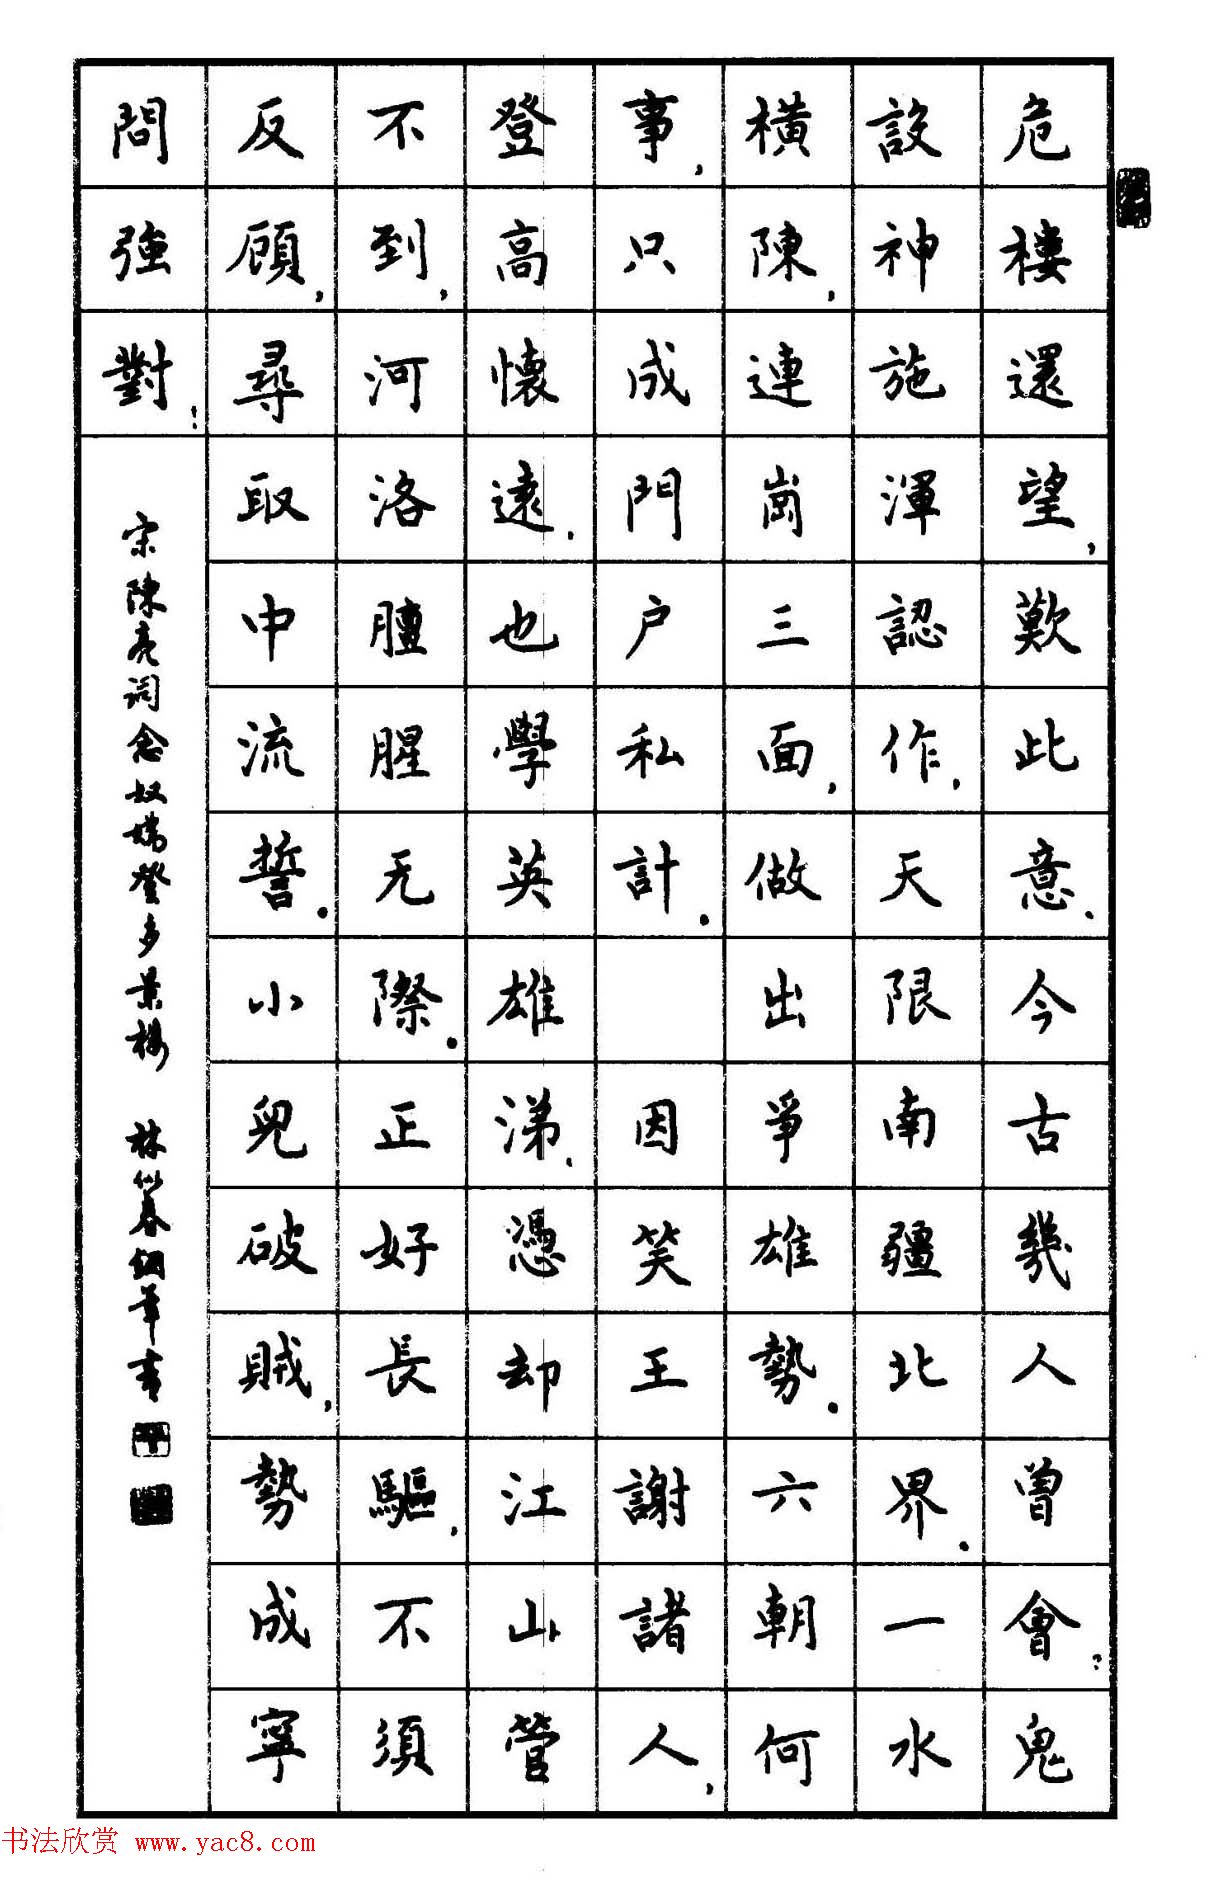 危樓還望，歎此意、今古幾人曾會？鬼
設神施渾認作，天限南疆北界。一水
橫陳，連崗三面，做出爭雄勢。六朝何
事，只成門户私計。　因笑王謝諸人，
登高懷遠，也學英雄涕、憑却江山管
不到，河洛膻腥无際。正好長驅，不須
反顧，尋取中流誓。小兒破賊，勢成寧
問強對！
宋陳亮詞念奴嬌登多景樓　林似春鋼筆書
书法欣赏 www.yac8.com